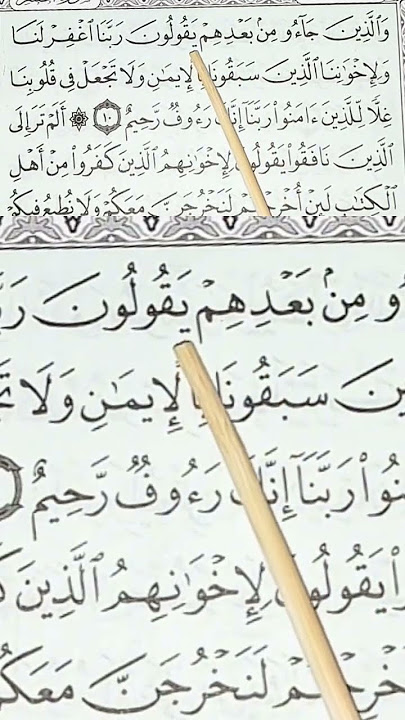 وَٱلَّذِينَ جَآءُو مِنۢ بَعْدِهِمْ يَقُولُونَ رَبَّنَا ٱغْفِرْ لَنَا
وَلِإِخْوَٰنِنَا ٱلَّذِينَ سَبَقُونَا بِٱلْإِيمَٰنِ وَلَا تَجْعَلْ فِى قُلُوبِنَا
غِلًّا لِّلَّذِينَ ءَامَنُوا۟ رَبَّنَآ إِنَّكَ رَءُوفٌ رَّحِيمٌ ١٠ ۞ أَلَمْ تَرَ إِلَى
ٱلَّذِينَ نَافَقُوا۟ يَقُولُونَ لِإِخْوَٰنِهِمُ ٱلَّذِينَ كَفَرُوا۟ مِنْ أَهْلِ
ٱلْكِتَٰبِ لَئِنْ أُخْرِجْتُمْ لَنَخْرُجَنَّ مَعَكُمْ وَلَا نُطِيعُ فِيكُمْ
مِنۢ بَعْدِهِمْ يَقُولُونَ
سَبَقُونَا بِٱلْإِيمَٰنِ وَلَا
رَبَّنَآ إِنَّكَ رَءُوفٌ رَّحِيمٌ
يَقُولُونَ لِإِخْوَٰنِهِمُ ٱلَّذِينَ
لَنَخْرُجَنَّ